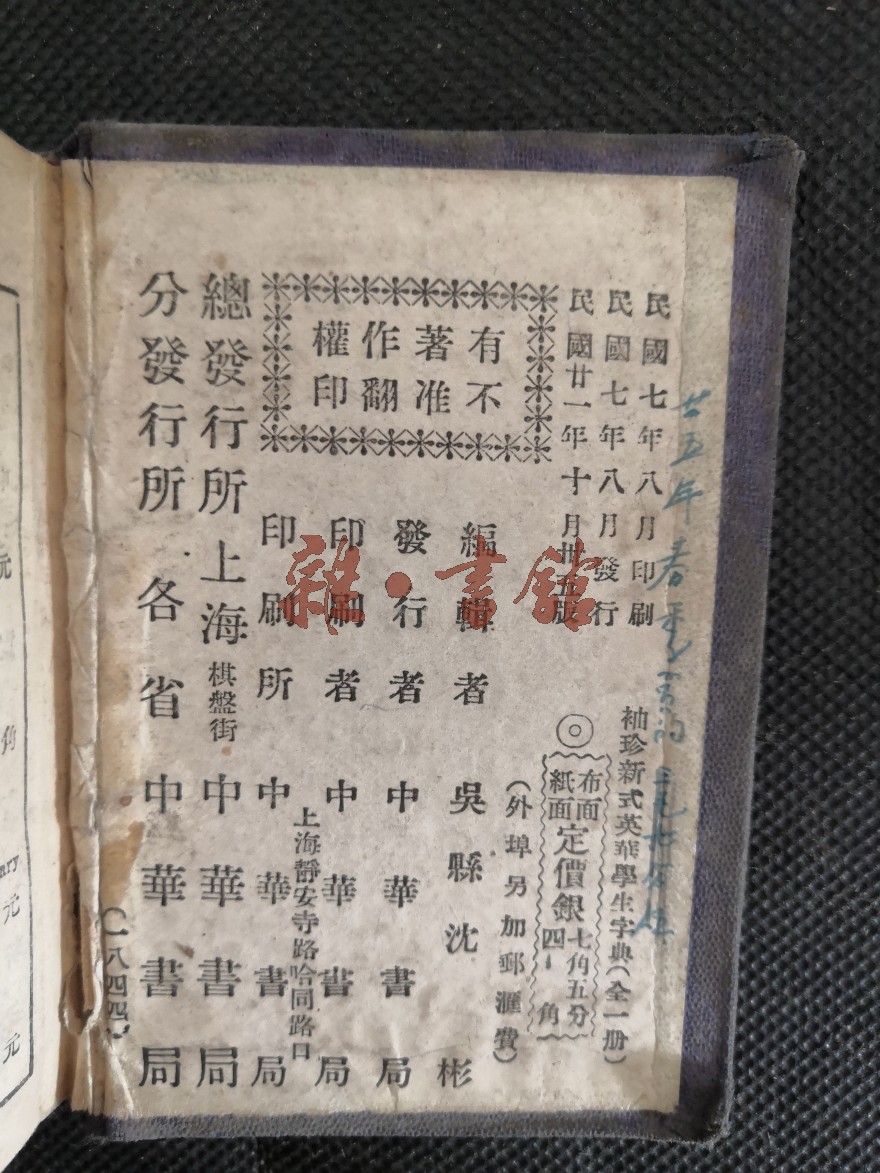 民國七年八月印刷
民國七年八月發行
民國廿一年十月卅五版
有不
著准
作翻
權印
袖珍新式英華學生字典(全一册)
布面
紙面
定價銀
七角五分
四角
(外埠另加郵滙費)
編輯者 吳縣沈彬
發行者 中華書局
印刷者 中華書局
上海靜安寺路哈同路口
印刷所 中華書局
總發行所 上海棋盤街 中華書局
分發行所 各省 中華書局
廿五年春季
雜·書館
元
角
nry
元
元